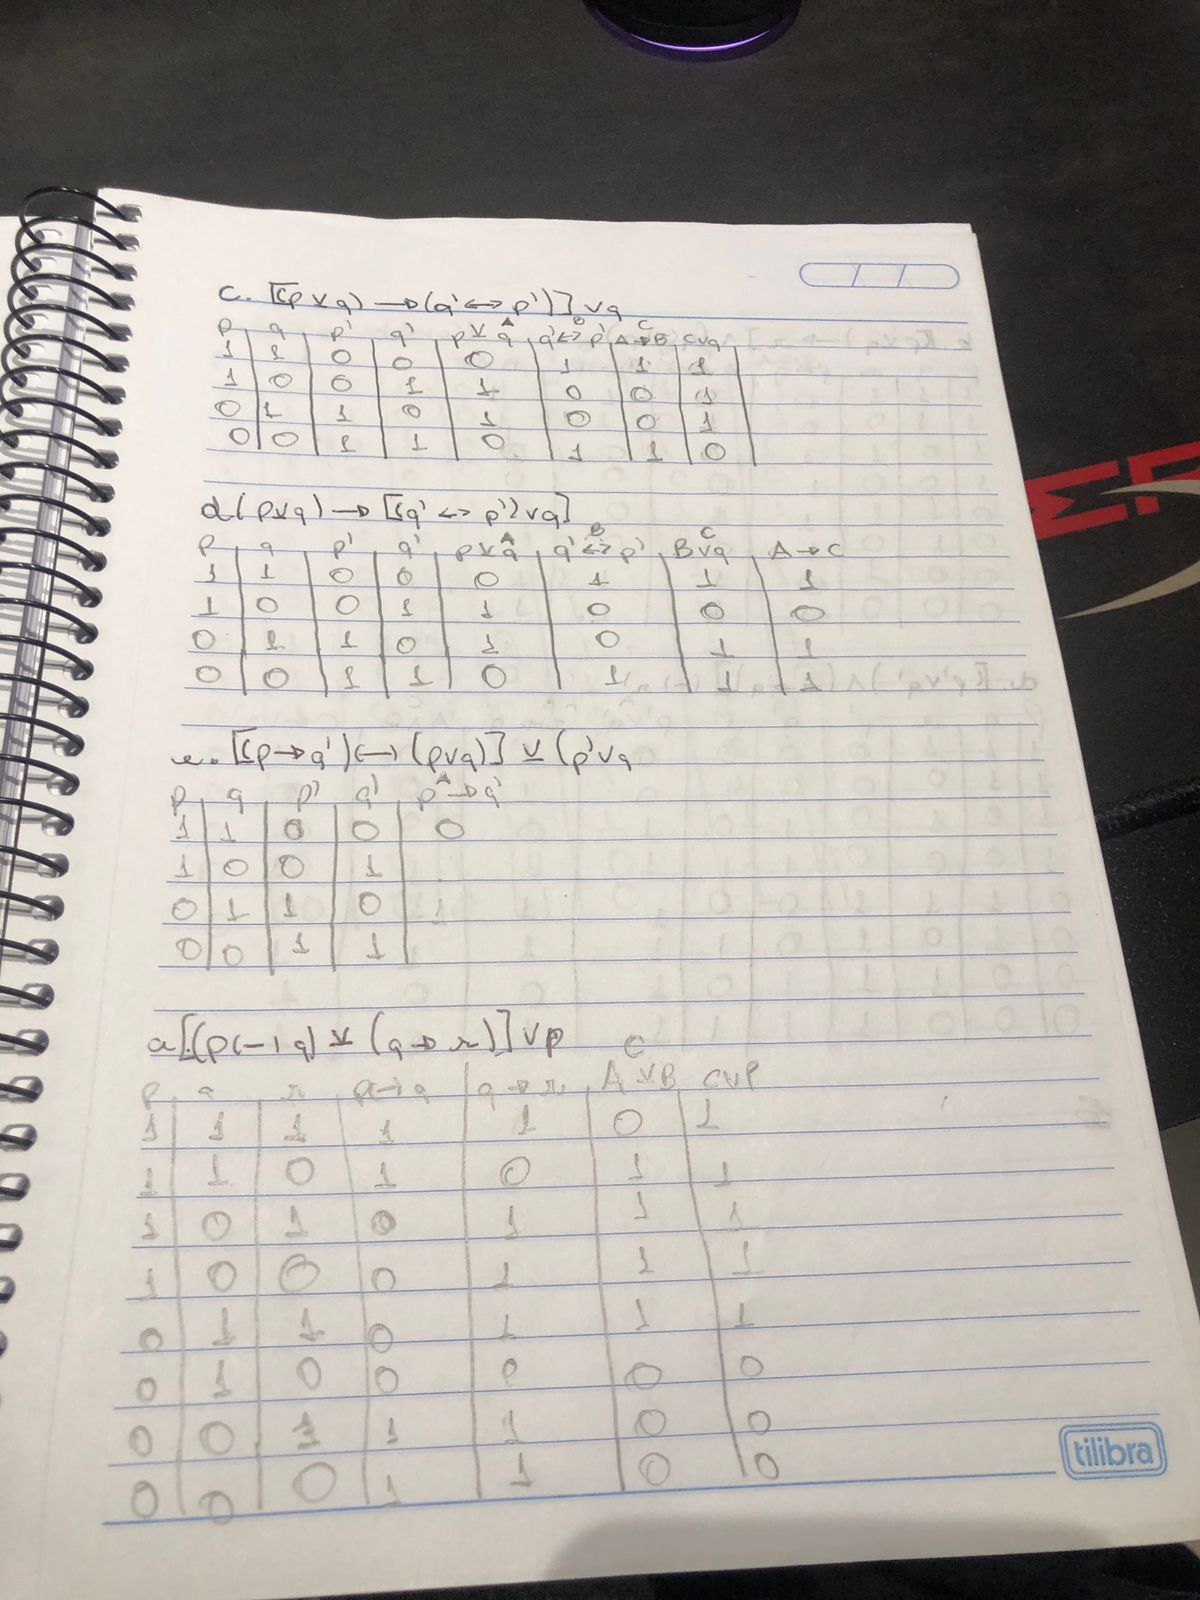 c. [(p ∨ q) → (q' ↔ p')] ∨ q
p q p' q' p ⊻ q A q' ↔ p' B A → B C C ∨ q
1 1 0 0 0 1 1 1
1 0 0 1 1 0 0 1
0 1 1 0 1 0 0 1
0 0 1 1 0 1 1 0
d (p ⊻ q) → [(q' ↔ p') ∨ q]
p q p' q' p ⊻ q A q' ↔ p' B B ∨ q C A → C
1 1 0 0 0 1 1 1
1 0 0 1 1 0 0 0
0 1 1 0 1 0 1 1
0 0 1 1 0 1 1 1
e. [(p → q') ↔ (p ∨ q)] ⊻ (p' ∨ q
p q p' q' p → q' A
1 1 0 0 0
1 0 0 1
0 1 1 0 1
0 0 1 1
a [(p ↔ q) ⊻ (q → r)] ∨ p
C
p q r p ↔ q q → r A ⊻ B C ∨ P
1 1 1 1 1 0 1
1 1 0 1 0 1 1
1 0 1 0 1 1 1
1 0 0 0 1 1 1
0 1 1 0 1 1 1
0 1 0 0 0 0 0
0 0 1 1 1 0 0
0 0 0 1 1 0 0
tilibra